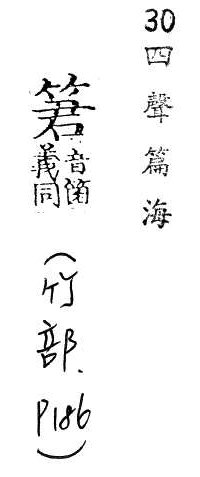 30 四聲篇海
䇹 音箘義同 (竹部、P186)